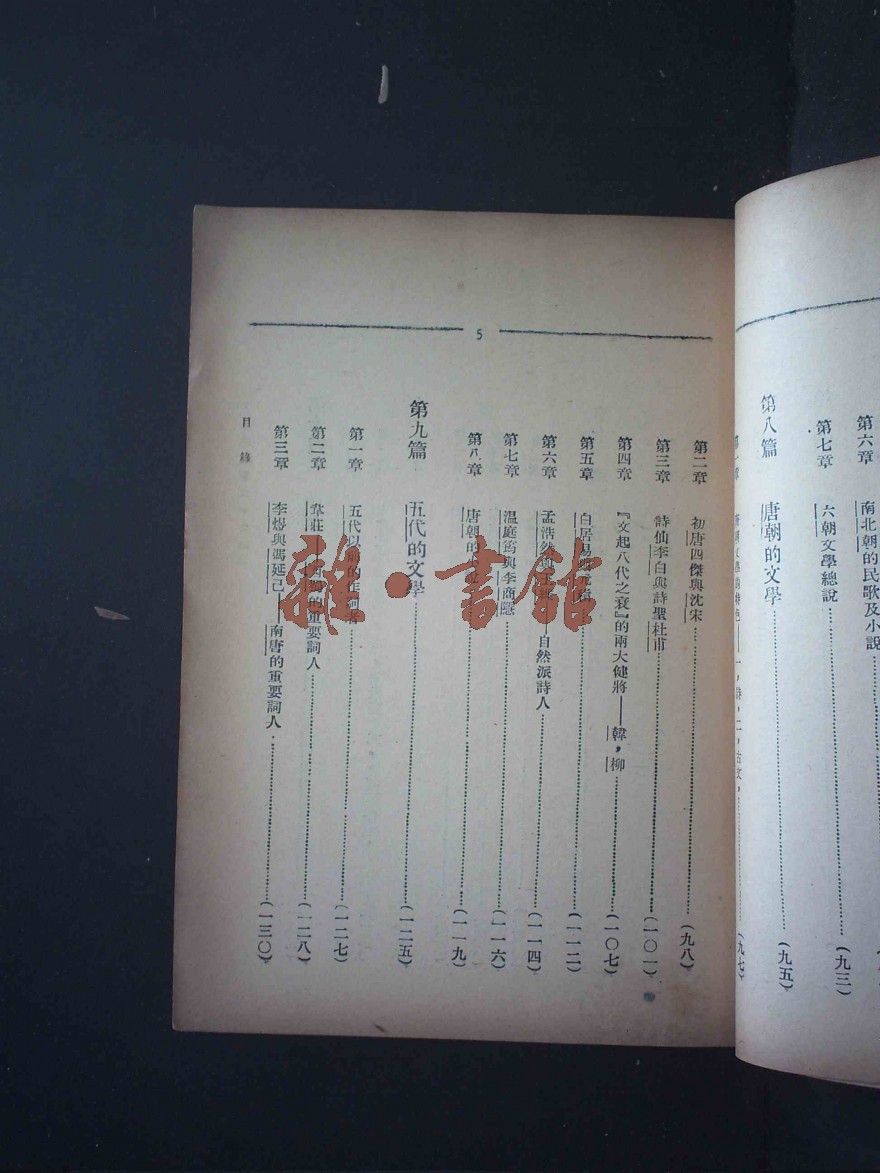 第六章 南北朝的民歌及小說
第七章 六朝文學總說……(九三)
第八篇 唐朝的文學……(九五)
第一章 ……(九七)
5
第二章 初唐四傑與沈宋……(九八)
第三章 詩仙李白與詩聖杜甫……(一〇一)
第四章 『文起八代之衰』的兩大健將——韓，柳……(一〇七)
第五章 白居易……(一一二)
第六章 孟浩然與王維——自然派詩人……(一一四)
第七章 温庭筠與李商隱……(一一六)
第八章 唐朝的……(一一九)
第九篇 五代的文學……(一二五)
第一章 五代以前的作詞者……(一二七)
第二章 韋莊——西蜀的重要詞人……(一二八)
第三章 李煜與馮延己——南唐的重要詞人……(一三〇)
目錄
雜·書館